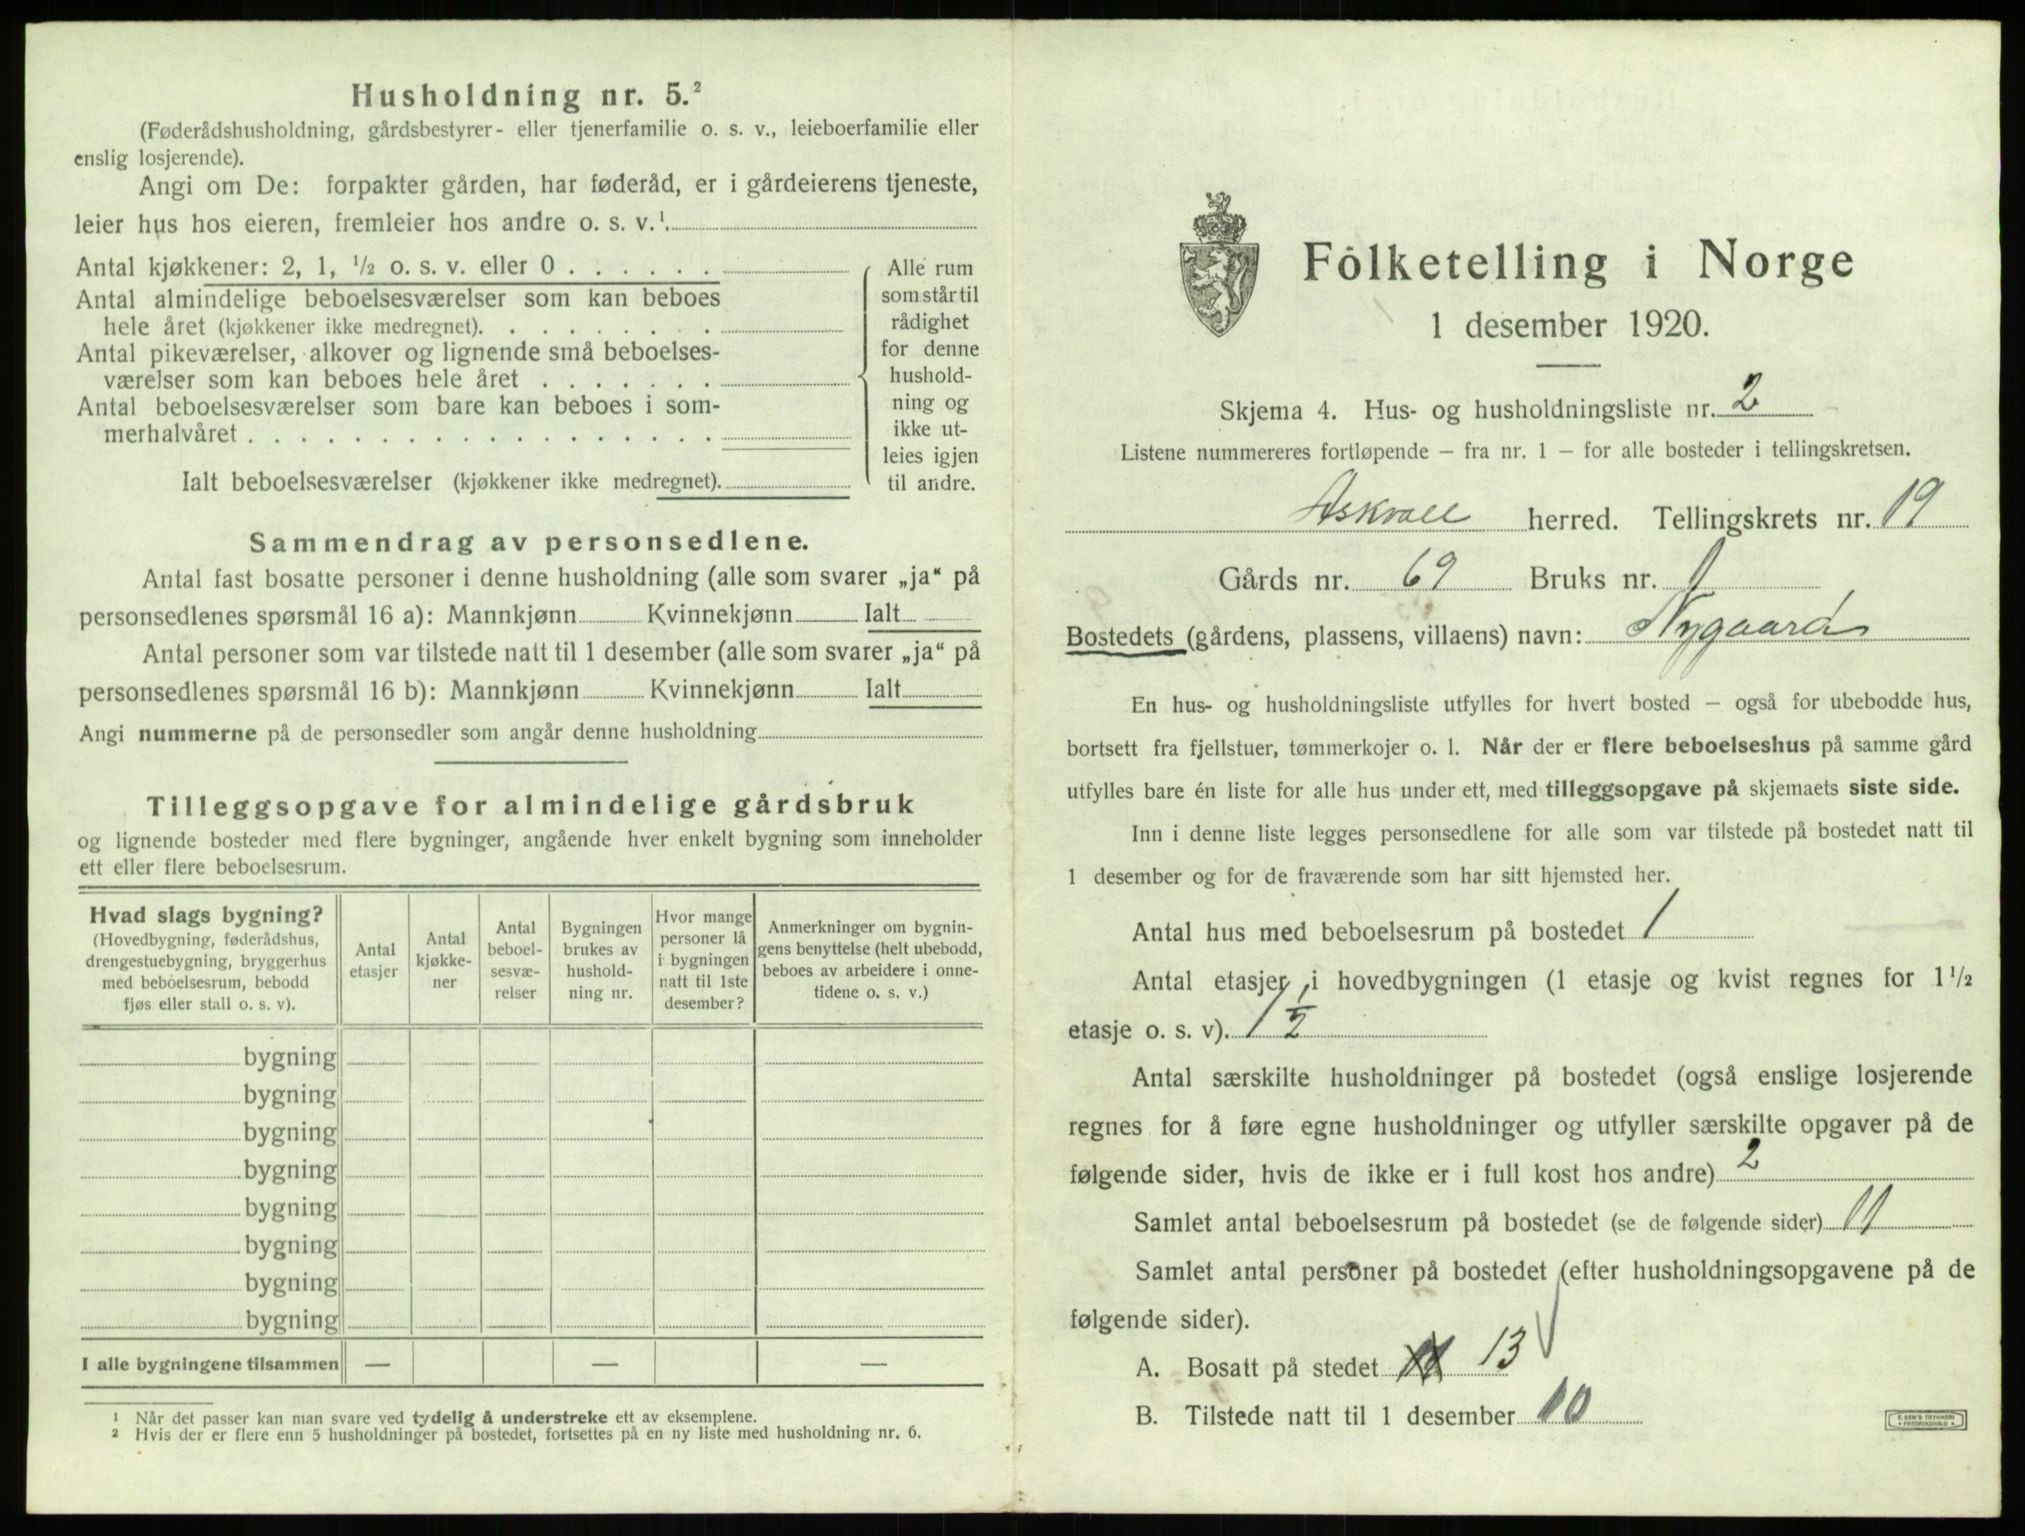 Husholdning nr. 5.²
(Føderådshusholdning, gårdsbestyrer- eller tjenerfamilie o. s. v., leieboerfamilie eller
enslig losjerende).
Angi om De: forpakter gården, har føderåd, er i gårdeierens tjeneste,
leier hus hos eieren, fremleier hos andre o. s. v.¹.
Antal kjøkkener: 2, 1, ½ o. s. v. eller 0 . . . . . .
Antal almindelige beboelsesværelser som kan beboes
hele året (kjøkkener ikke medregnet). . . . . . . . .
Antal pikeværelser, alkover og lignende små beboelses-
værelser som kan beboes hele året . . . . . . .
Antal beboelsesværelser som bare kan beboes i som-
merhalvåret . . . . . . . . . . . . . . . . . .
Ialt beboelsesværelser (kjøkkener ikke medregnet).
Alle rum
som står til
rådighet
for denne
hushold-
ning og
ikke ut-
leies igjen
til andre.
Sammendrag av personsedlene.
Antal fast bosatte personer i denne husholdning (alle som svarer „ja“ på
personsedlenes spørsmål 16 a): Mannkjønn Kvinnekjønn Ialt
Antal personer som var tilstede natt til 1 desember (alle som svarer „ja“ på
personsedlenes spørsmål 16 b): Mannkjønn Kvinnekjønn Ialt
Angi nummerne på de personsedler som angår denne husholdning
Tilleggsopgave for almindelige gårdsbruk
og lignende bosteder med flere bygninger, angående hver enkelt bygning som inneholder
ett eller flere beboelsesrum.
Hvad slags bygning?
(Hovedbygning, føderådshus,
drengestuebygning, bryggerhus
med beboelsesrum, bebodd
fjøs eller stall o. s. v).
Antal
etasjer
Antal
kjøkke-
ner
Antal
beboel-
sesvæ-
relser
Bygningen
brukes av
hushold-
ning nr.
Hvor mange
personer lå
i bygningen
natt til 1ste
desember?
Anmerkninger om bygnin-
gens benyttelse (helt ubebodd,
beboes av arbeidere i onne-
tidene o. s. v.)
bygning
bygning
bygning
bygning
bygning
bygning
bygning
bygning
I alle bygningene tilsammen — — —
¹ Når det passer kan man svare ved tydelig å understreke ett av eksemplene.
² Hvis der er flere enn 5 husholdninger på bostedet, fortsettes på en ny liste med husholdning nr. 6.
Folketelling i Norge
1 desember 1920.
Skjema 4. Hus- og husholdningsliste nr. 2
Listene nummereres fortløpende – fra nr. 1 – for alle bosteder i tellingskretsen.
Askvoll herred. Tellingskrets nr. 19
Gårds nr. 69 Bruks nr. 1
Bostedets (gårdens, plassens, villaens) navn: Nygaard
En hus- og husholdningsliste utfylles for hvert bosted – også for ubebodde hus,
bortsett fra fjellstuer, tømmerkojer o. l. Når der er flere beboelseshus på samme gård
utfylles bare én liste for alle hus under ett, med tilleggsopgave på skjemaets siste side.
Inn i denne liste legges personsedlene for alle som var tilstede på bostedet natt til
1 desember og for de fraværende som har sitt hjemsted her.
Antal hus med beboelsesrum på bostedet 1
Antal etasjer i hovedbygningen (1 etasje og kvist regnes for 1½
etasje o. s. v). 1 ½
Antal særskilte husholdninger på bostedet (også enslige losjerende
regnes for å føre egne husholdninger og utfyller særskilte opgaver på de
følgende sider, hvis de ikke er i full kost hos andre) 2
Samlet antal beboelsesrum på bostedet (se de følgende sider) 11
Samlet antal personer på bostedet (efter husholdningsopgavene på de
følgende sider).
A. Bosatt på stedet 13
B. Tilstede natt til 1 desember 10
E. SEM'S TRYKKERI
FREDRIKSHALD